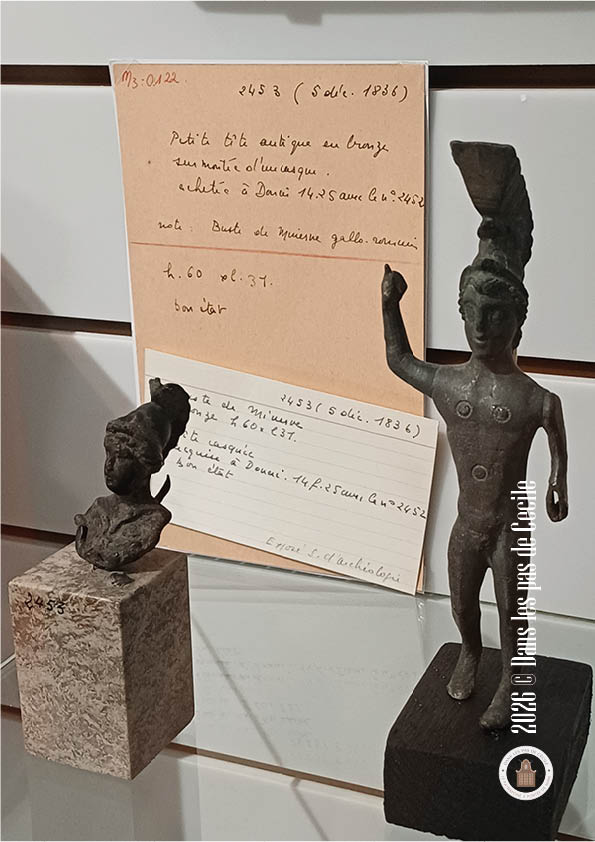 M3-0122.
2453 (5 déc. 1836)
Petite tête antique en bronze
surmontée d'un casque.
achetée à Douai 14.25 avec le n° 2452
note: Buste de Minerve gallo-romain
h. 60 x l. 37.
bon état
2453 (5 déc. 1836)
de Minerve
h 60 x l 37.
casquée
à Douai. 14 f. 25 avec le n° 2452
Bon état
Exposé S. d'archéologie
2453
2026 © Dans les pas de Cécile